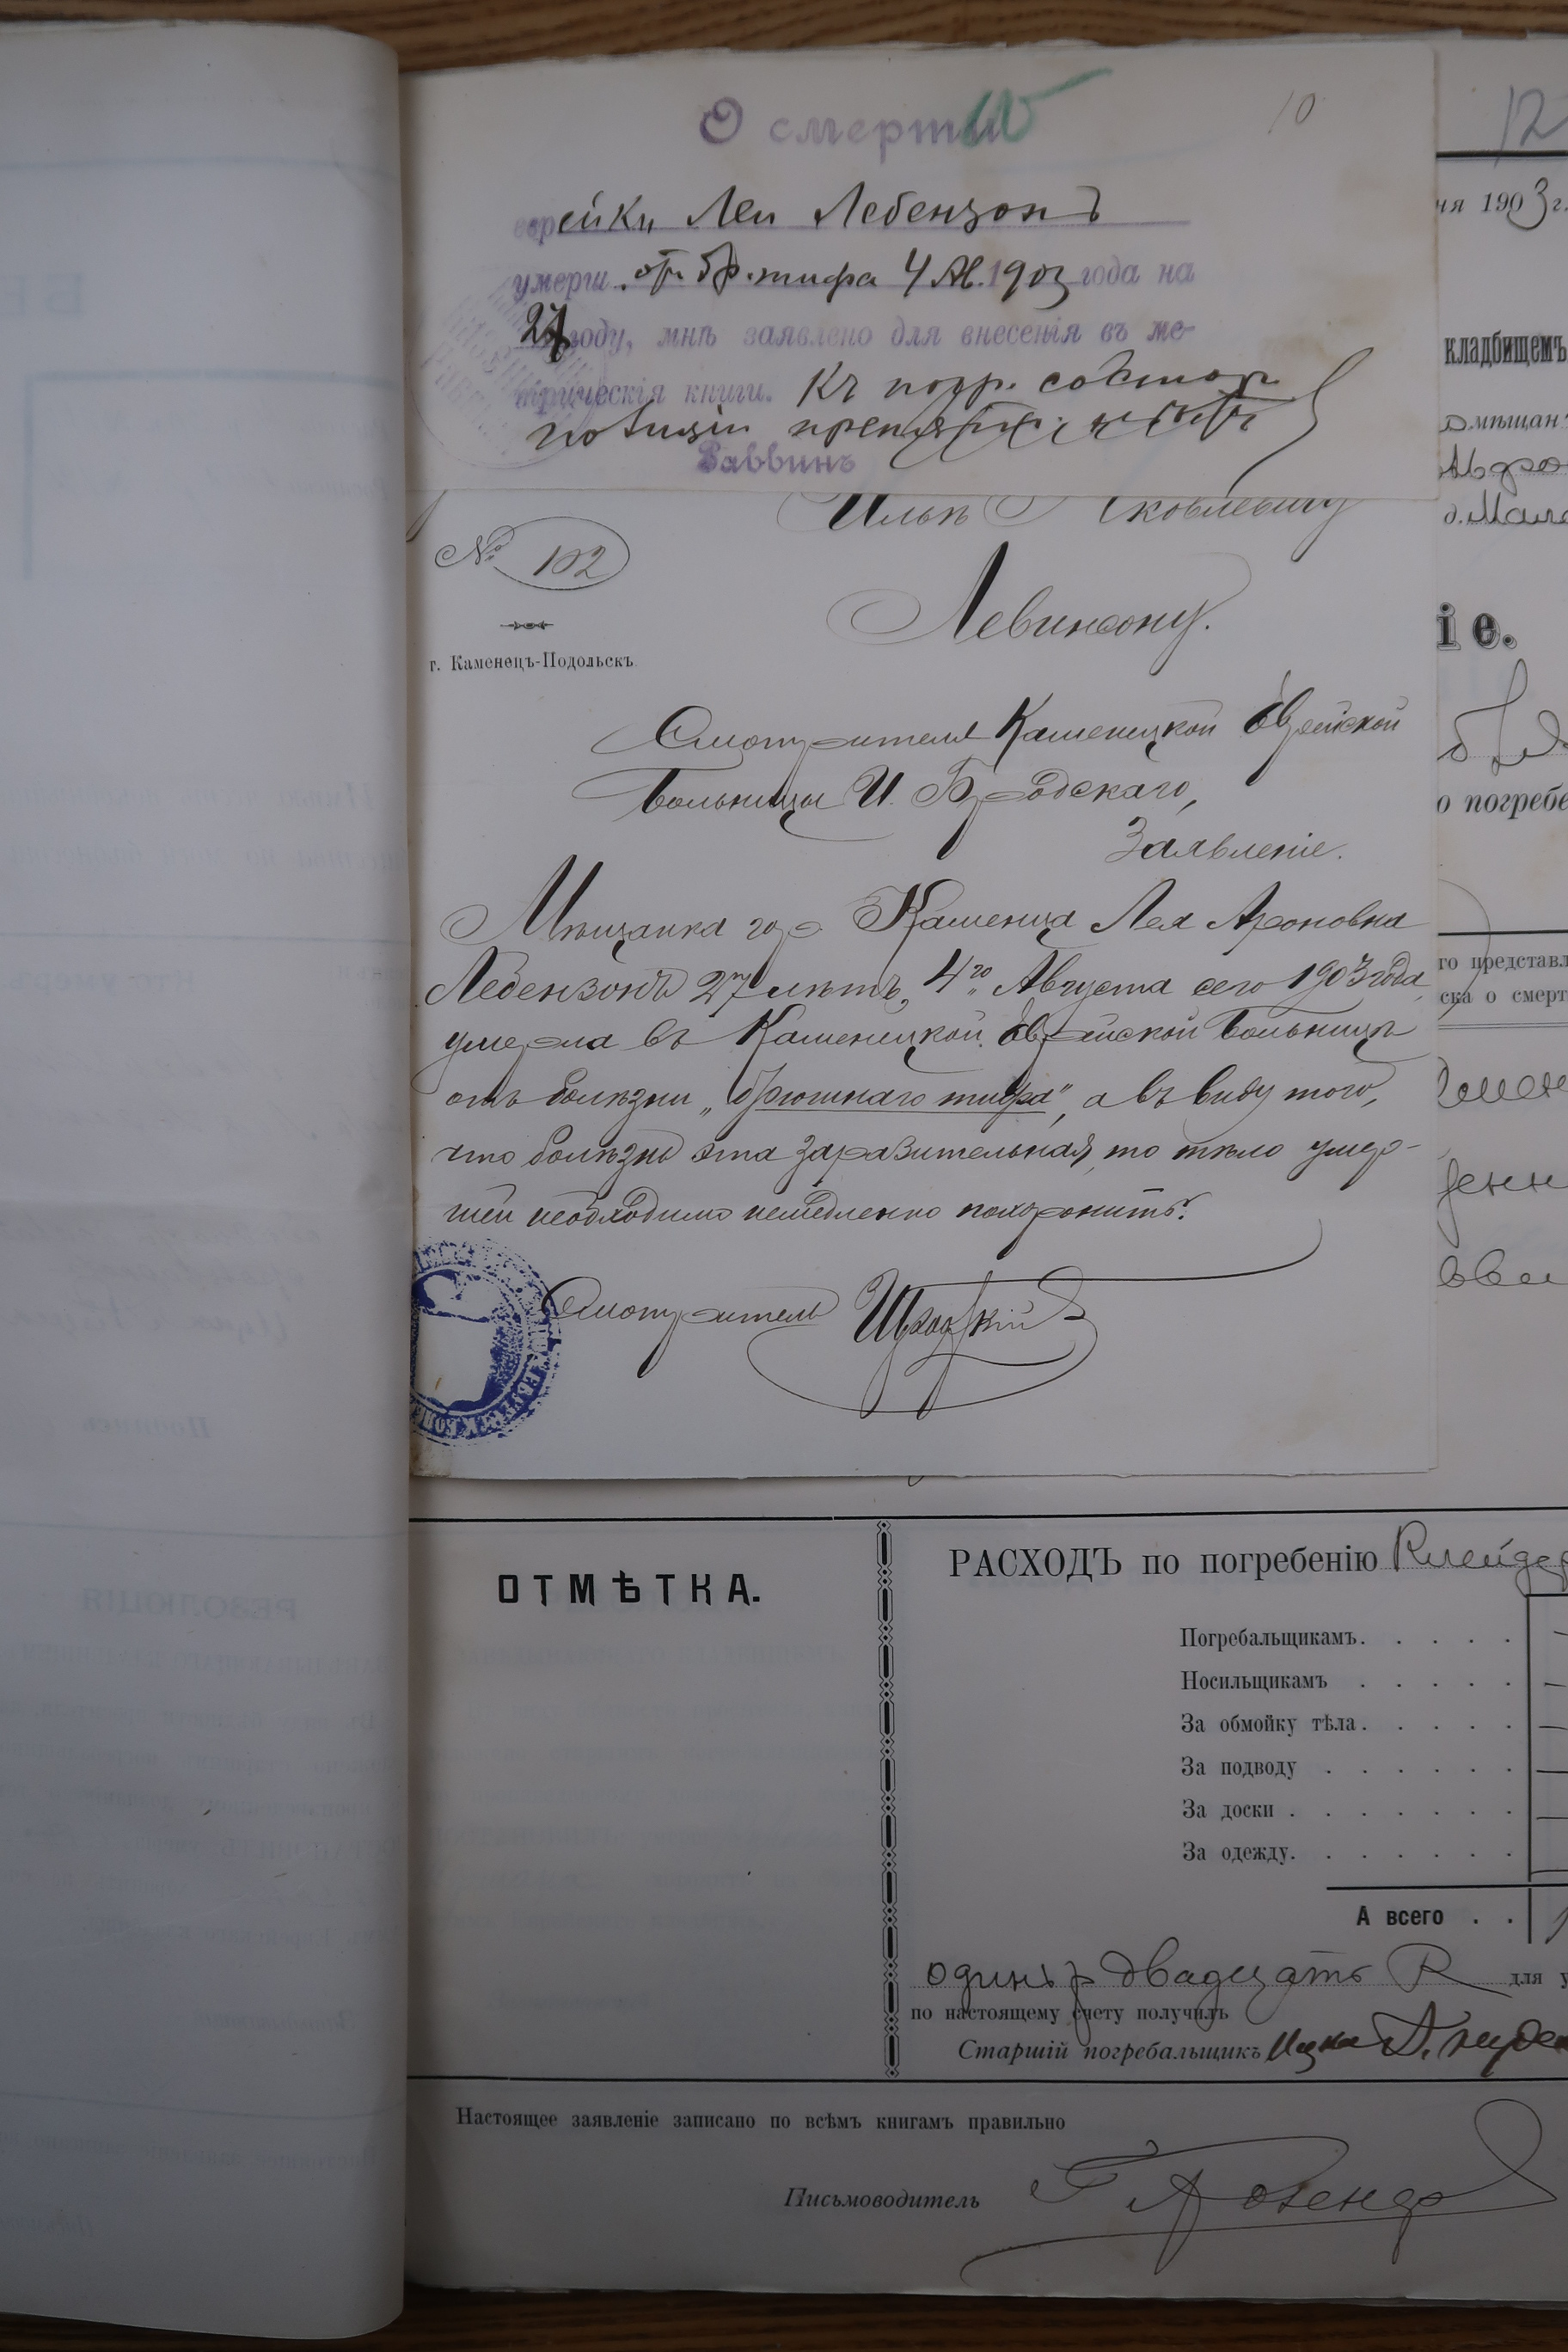 О смерти
10
еврейки Леи Лебензонъ
умерш. от бр. тифа 4 Ав. 1903 года на
27 году, мнѣ заявлено для внесенія въ ме-
трическія книги. Къ погр. со стор.
полиціи препятств. нѣтъ
Раввинъ
Ильѣ Яковлевичу
№ 102
Левинсону.
г. Каменецъ-Подольскъ
Смотрителя Каменецкой Еврейской
Больницы И. Бродскаго,
Заявленіе.
Мѣщанка гор. Каменца Лея Ароновна
Лебензонъ 27 лѣтъ, 4го Августа сего 1903 года
умерла въ Каменецкой Еврейской Больницѣ
отъ болѣзни „брюшнаго тифа", а въ виду того,
что болѣзнь эта заразительная, то тѣло умер-
шей необходимо немедленно похоронить.
Смотритель
12
ня 1903 г.
кладбищемъ
мѣщан
д. Мала
іе.
о погребе
го представл
ска о смерт
ОТМѢТКА.
РАСХОДЪ по погребенію
Погребальщикамъ.
Носильщикамъ
За обмойку тѣла.
За подводу
За доски
За одежду.
А всего
одинъ р двадцать К для у
по настоящему счету получилъ
Старшій погребальщикъ
Настоящее заявленіе записано по всѣмъ книгамъ правильно
Письмоводитель
РЕЗОЛЮЦІЯ